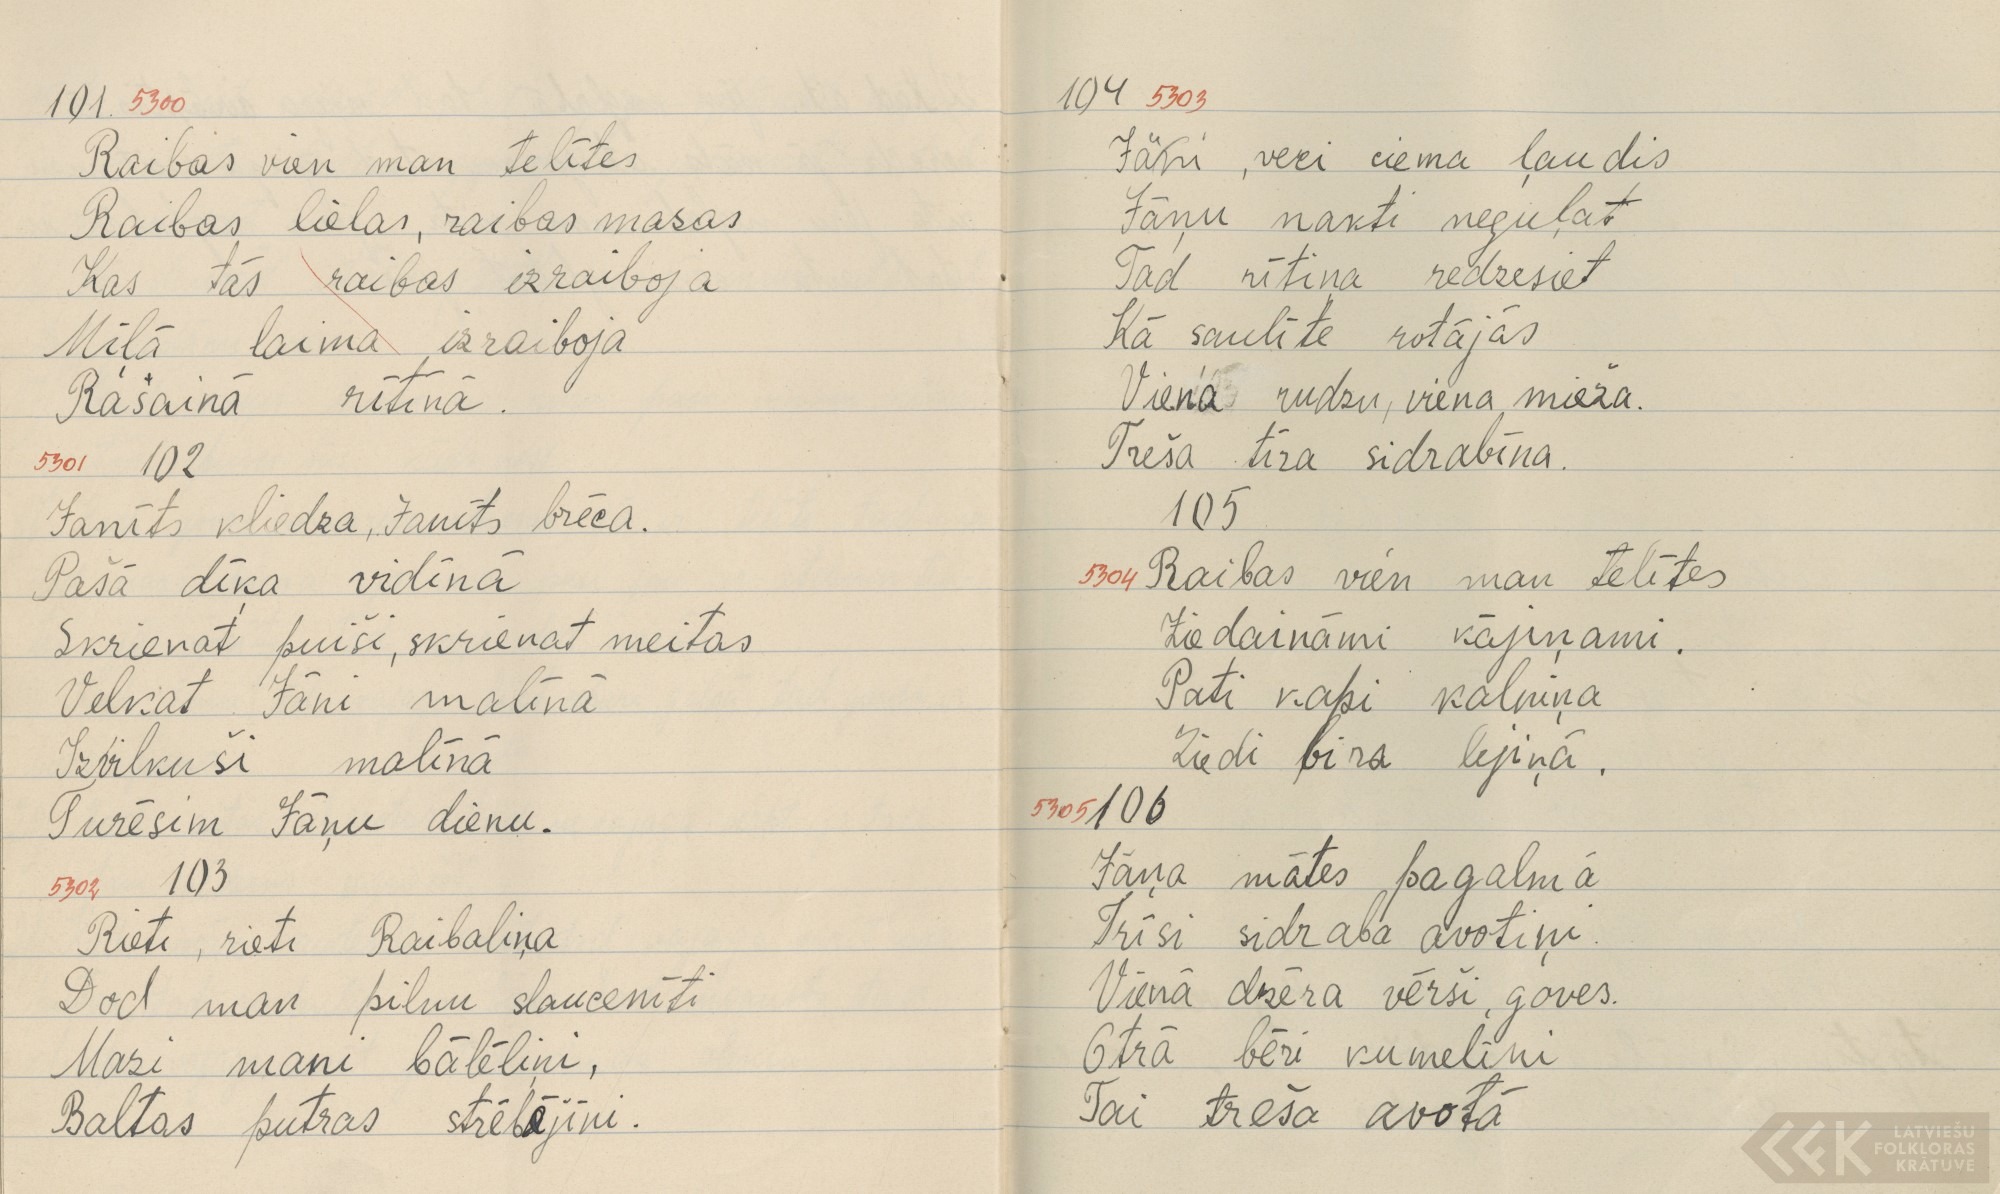 101. 5300
Raibas vien man telītes
Raibas lielas, raibas mazas
Kas tās raibas izraiboja
Mīļā laima izraiboja
Rašainā rītīnā.
5301 102
Janīts kliedza, Janīts brēca.
Pašā dīķa vidīnā
Skrienat puiši, skrienat meitas
Velkat Jāni malīnā
Izvilkuši malīnā
Turēsim Jāņu dienu.
5302 103
Rieti, rieti Raibaliņa
Dod man pilnu slaucenīti
Mazi mani bālēliņi,
Baltas putras strēbējīni.
104 5303
Jāņi, veci ciema ļaudis
Jāņu nakti neguļat
Tad rītiņa redzesiet
Kā saulīte rotājās
Viena rudzu, viena mieža.
Treša tīra sidrabīna.
105
5304 Raibas vien man telītes
Ziedaināmi kājiņami.
Pati kapi kalniņa
Ziedi bira lejiņā.
5305 106
Jāņa mātes pagalmā
Trīsi sidraba avotiņi.
Vienā dzēra vērši, goves.
Otrā bēri kumelīni
Tai treša avotā
LATVIEŠU
FOLKLORAS
KRĀTUVE